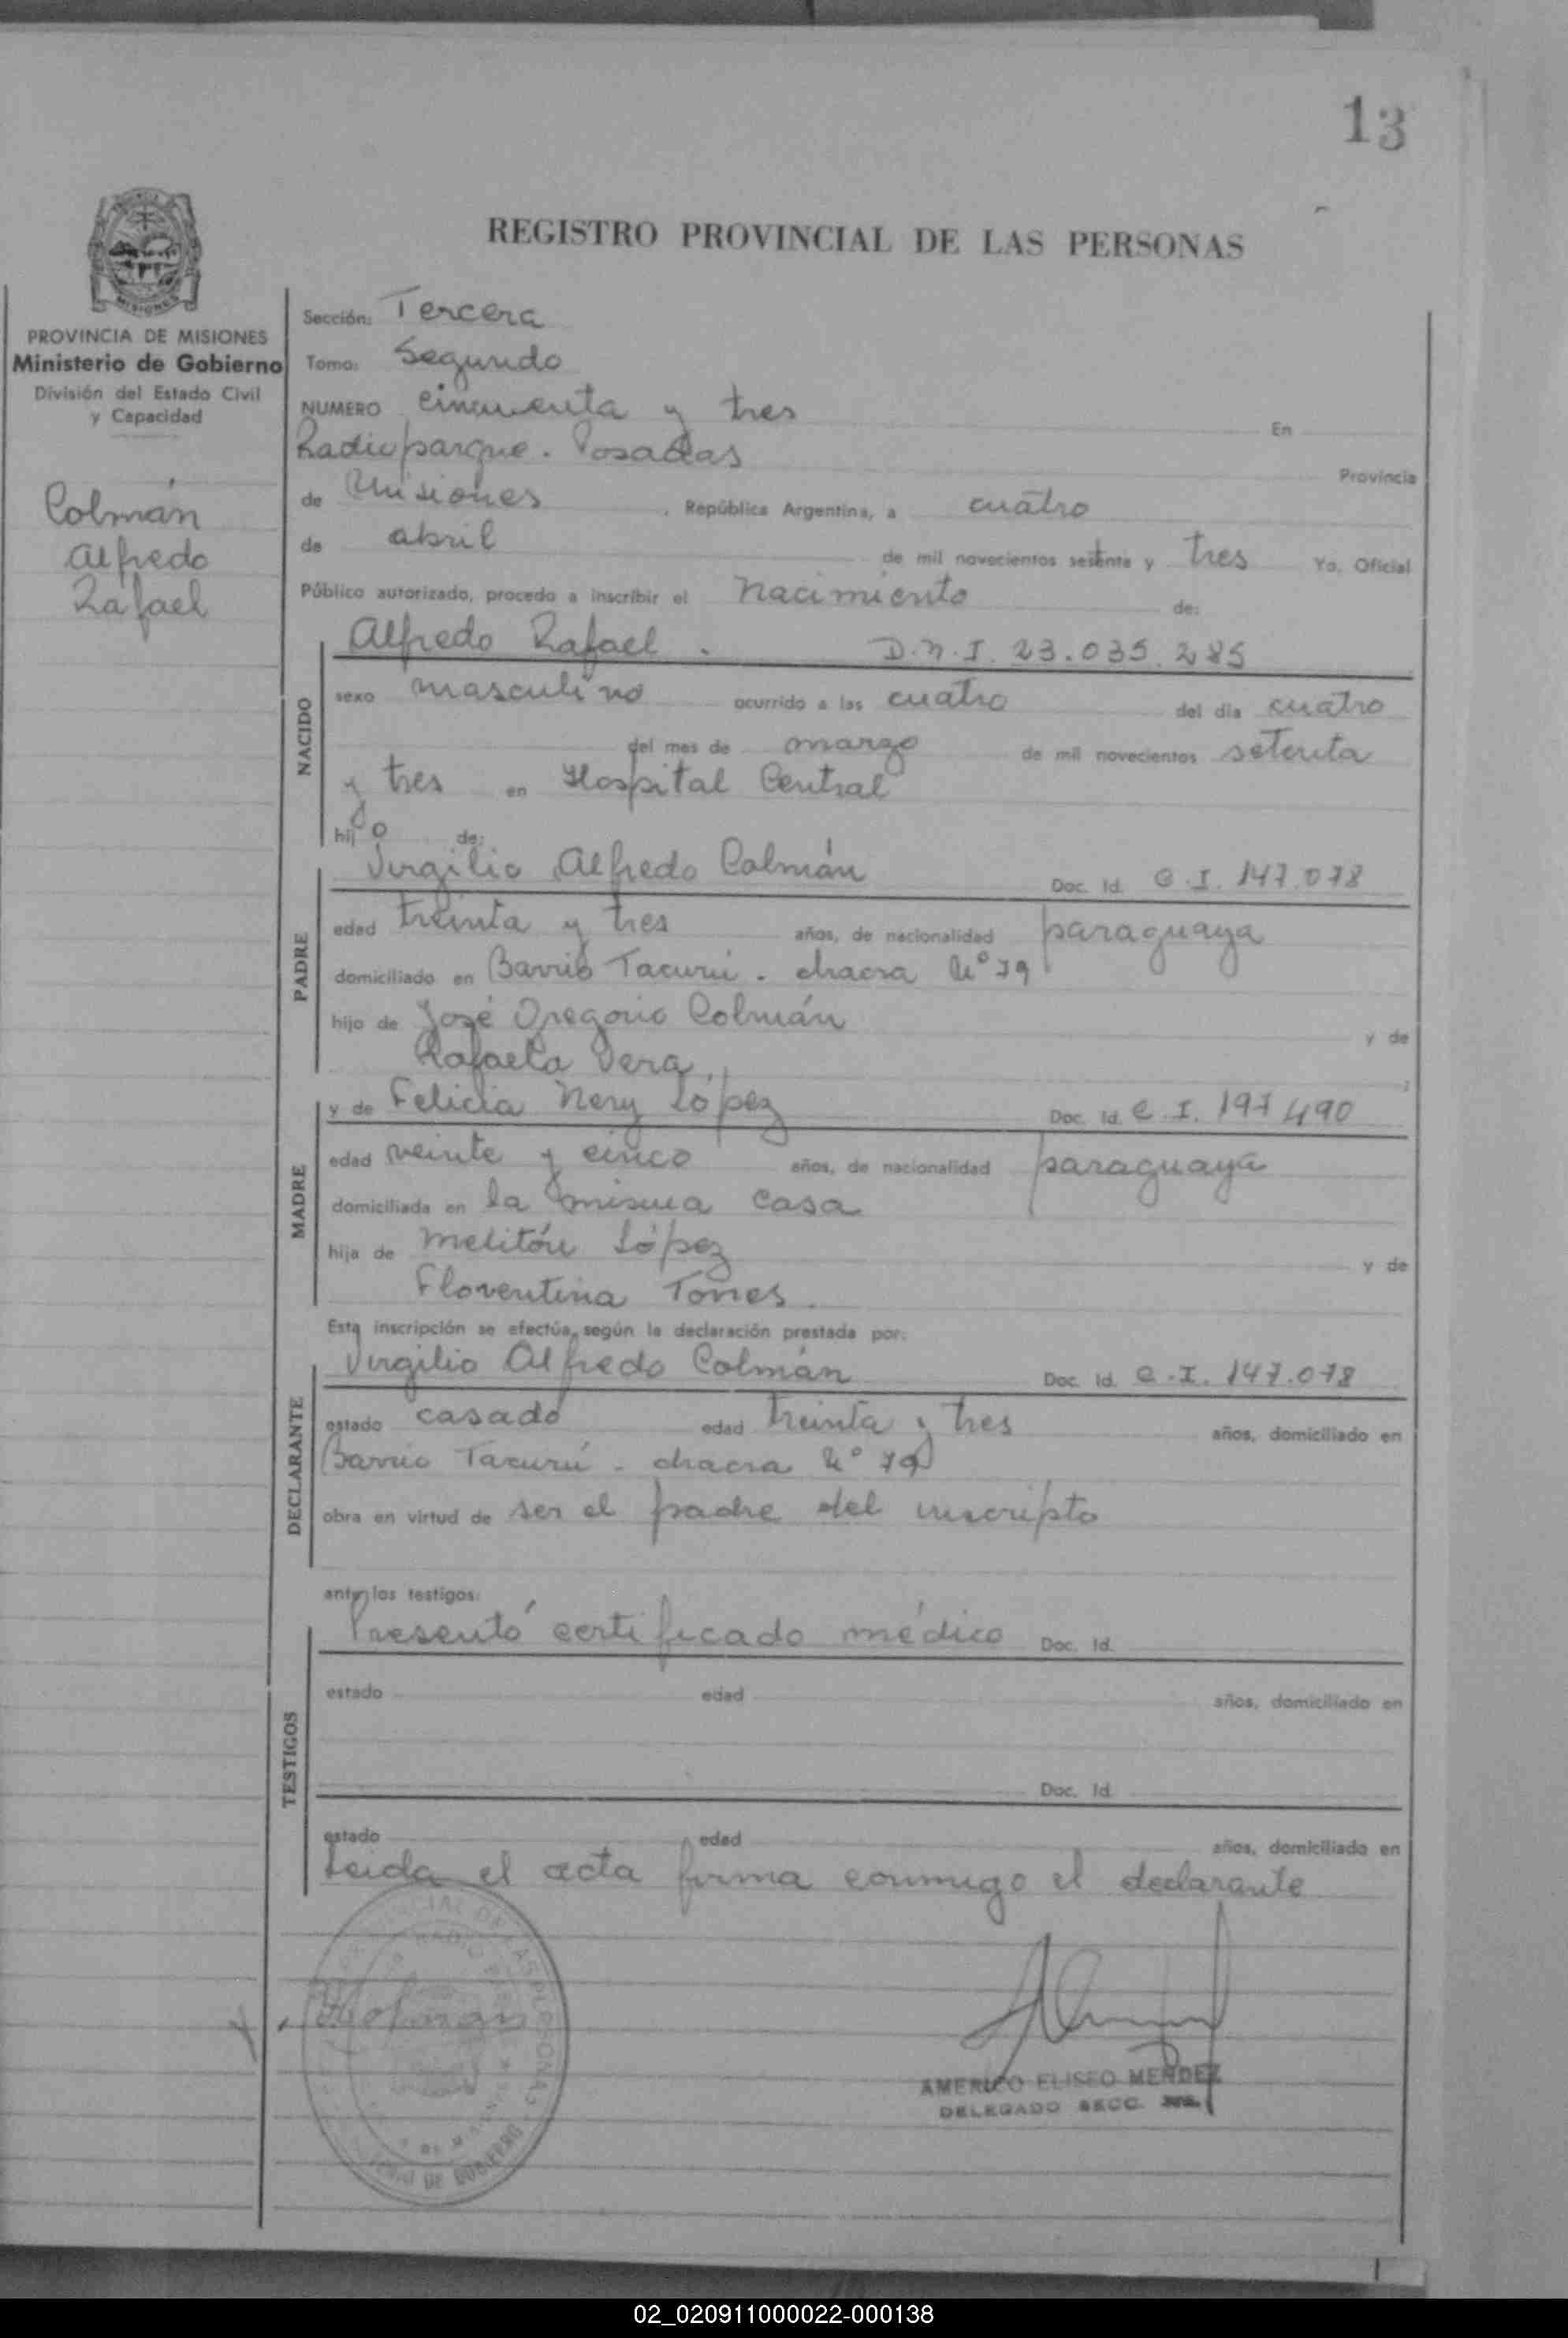 13
REGISTRO PROVINCIAL DE LAS PERSONAS
MISIONES
PROVINCIA DE MISIONES
Ministerio de Gobierno
División del Estado Civil
y Capacidad
Colmán
Alfredo
Rafael
Sección: Tercera
Tomo: Segundo
NUMERO cincuenta y tres En
Radioparque. Posadas Provincia
de Misiones, República Argentina, a cuatro
de abril de mil novecientos setenta y tres Yo, Oficial
Público autorizado, procedo a inscribir el nacimiento de:
Alfredo Rafael. D.N.I. 23.035.285
NACIDO
sexo masculino ocurrido a las cuatro del día cuatro
del mes de marzo de mil novecientos setenta
y tres en Hospital Central
hijo de:
Virgilio Alfredo Colmán Doc. Id. C.I. 147.078
PADRE
edad treinta y tres años, de nacionalidad paraguaya
domiciliado en Barrio Tacurú. chacra Nº 79
hijo de José Gregorio Colmán y de
Rafaela Vera.
y de Felicia Nery López Doc. Id. C.I. 197490
MADRE
edad veinte y cinco años, de nacionalidad paraguaya
domiciliada en la misma casa
hija de Melitón López y de
Florentina Torres.
Esta inscripción se efectúa según la declaración prestada por:
Virgilio Alfredo Colmán Doc. Id. C.I. 147.078
DECLARANTE
estado casado edad treinta y tres años, domiciliado en
Barrio Tacurú - chacra Nº 79
obra en virtud de ser el padre del inscripto
ante los testigos:
Presentó certificado médico Doc. Id.
TESTIGOS
estado edad años, domiciliado en
Doc. Id.
estado edad años, domiciliado en
Leida el acta firma conmigo el declarante
AMERICO ELISEO MENDEZ
DELEGADO SECC.
02_020911000022-000138